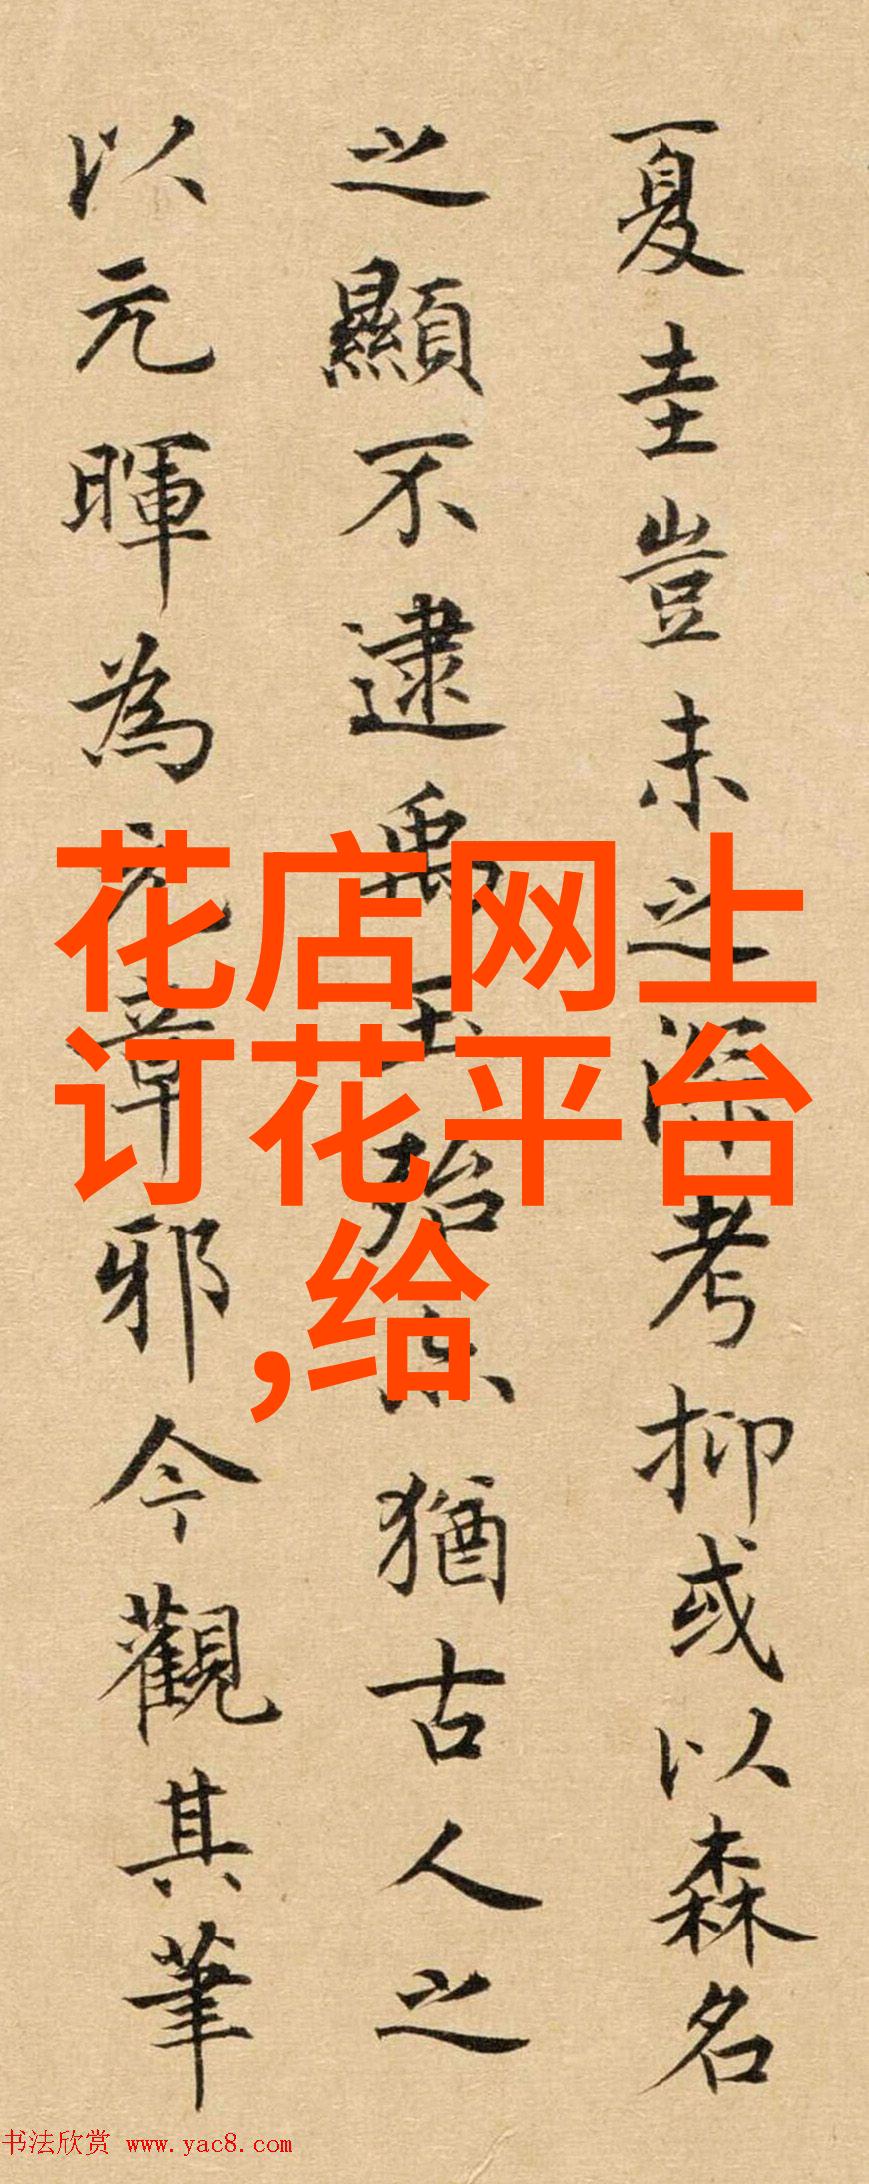 夏圭豈未之深考抑或以森名
之顯不逮禹玉殆亦猶古人之
以元暉為元章邪今觀其筆
花店网上
订花平台
,给
书法欣赏 www.yac8.com